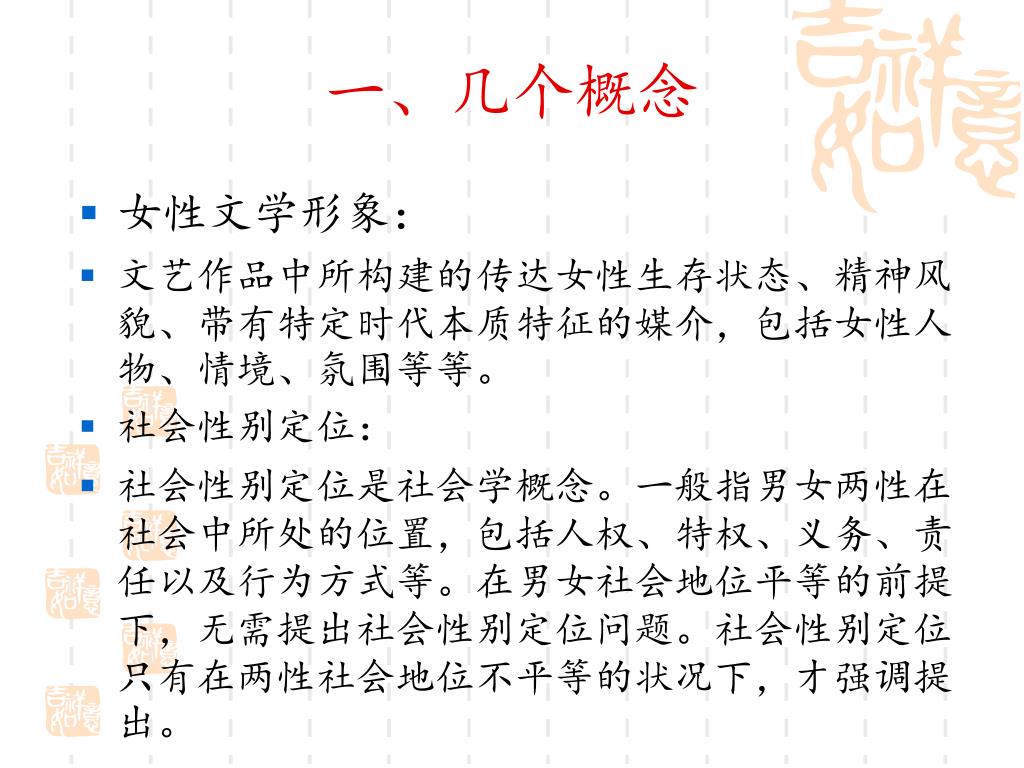 吉祥
如意
一、几个概念
女性文学形象：
文艺作品中所构建的传达女性生存状态、精神风
貌、带有特定时代本质特征的媒介，包括女性人
物、情境、氛围等等。
社会性别定位：
社会性别定位是社会学概念。一般指男女两性在
社会中所处的位置，包括人权、特权、义务、责
任以及行为方式等。在男女社会地位平等的前提
下，无需提出社会性别定位问题。社会性别定位
只有在两性社会地位不平等的状况下，才强调提
出。
吉祥
如意
吉祥
如意
吉祥
如意
吉祥
如意
吉祥
如意
吉祥
如意